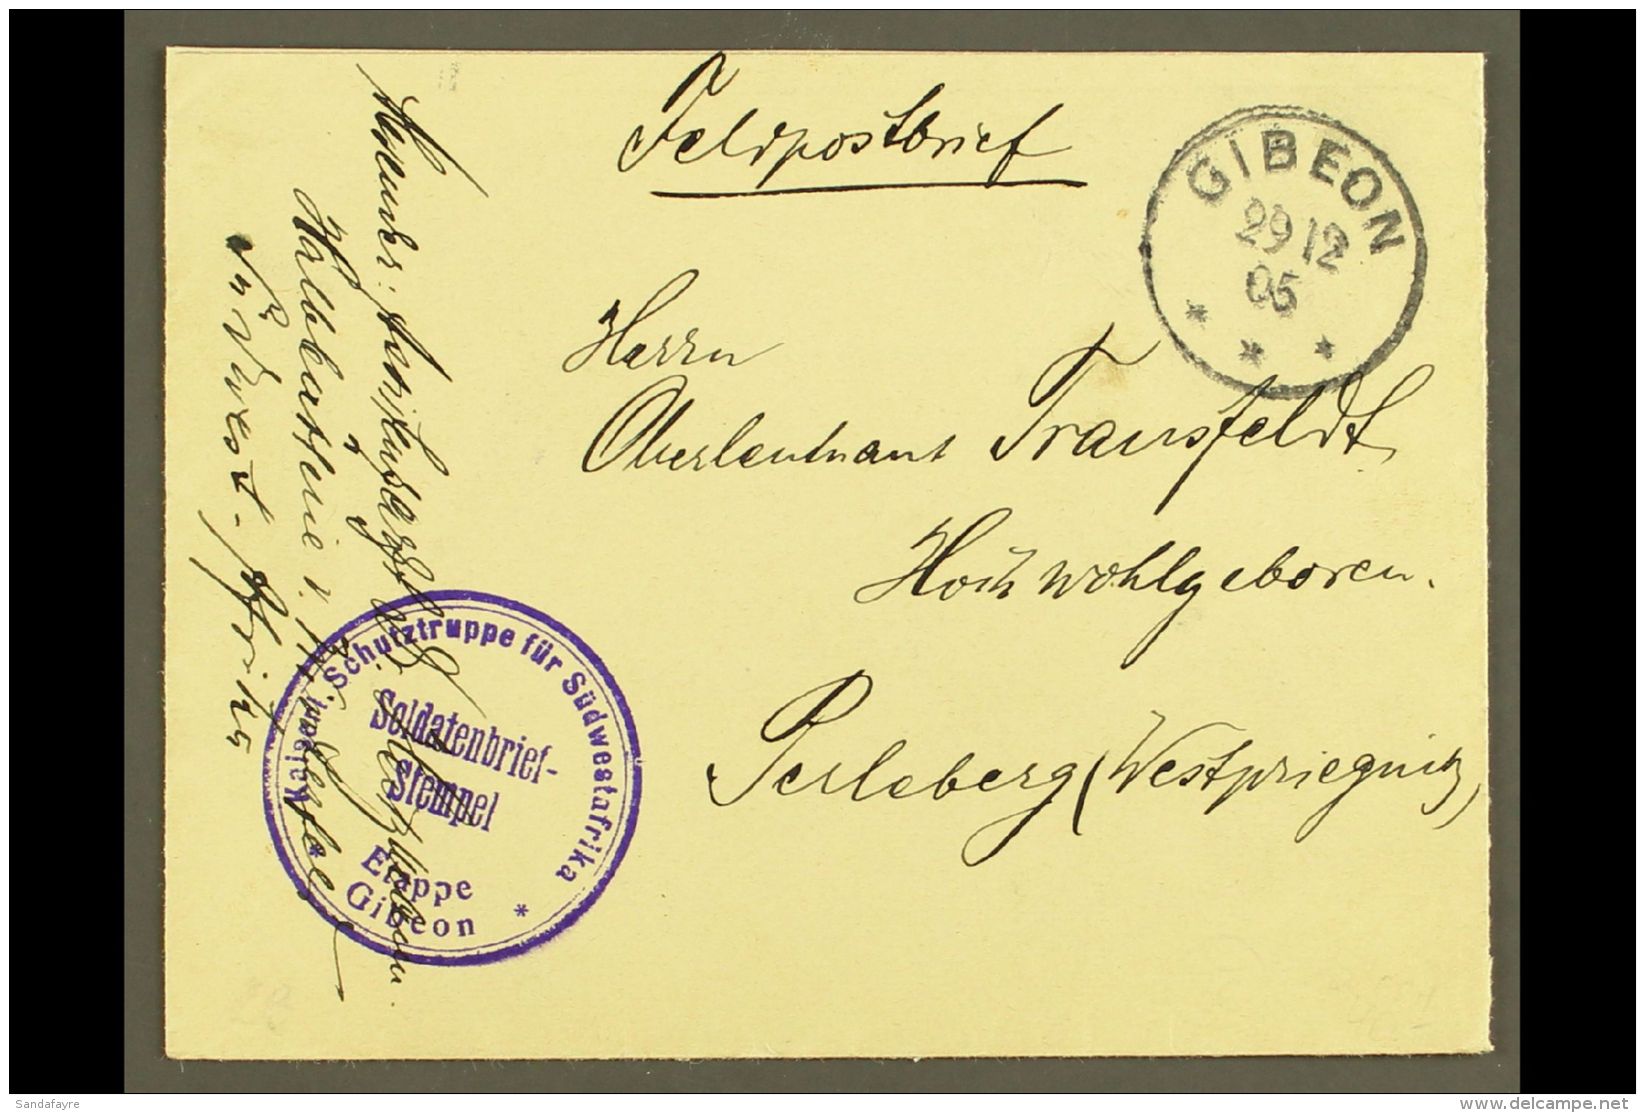 Feldpostbrief
GIBEON
29 12
05
Herrn
Oberleutnant Transfeldt
Hochwohlgeboren.
Perleberg (Westpriegnitz)
Halbbatterie
Südwest-Afrika
Kaiserl. Schutztruppe für Südwestafrika
Soldatenbrief-
Stempel
Etappe
Gibeon
Sandafayre
delcampe.net